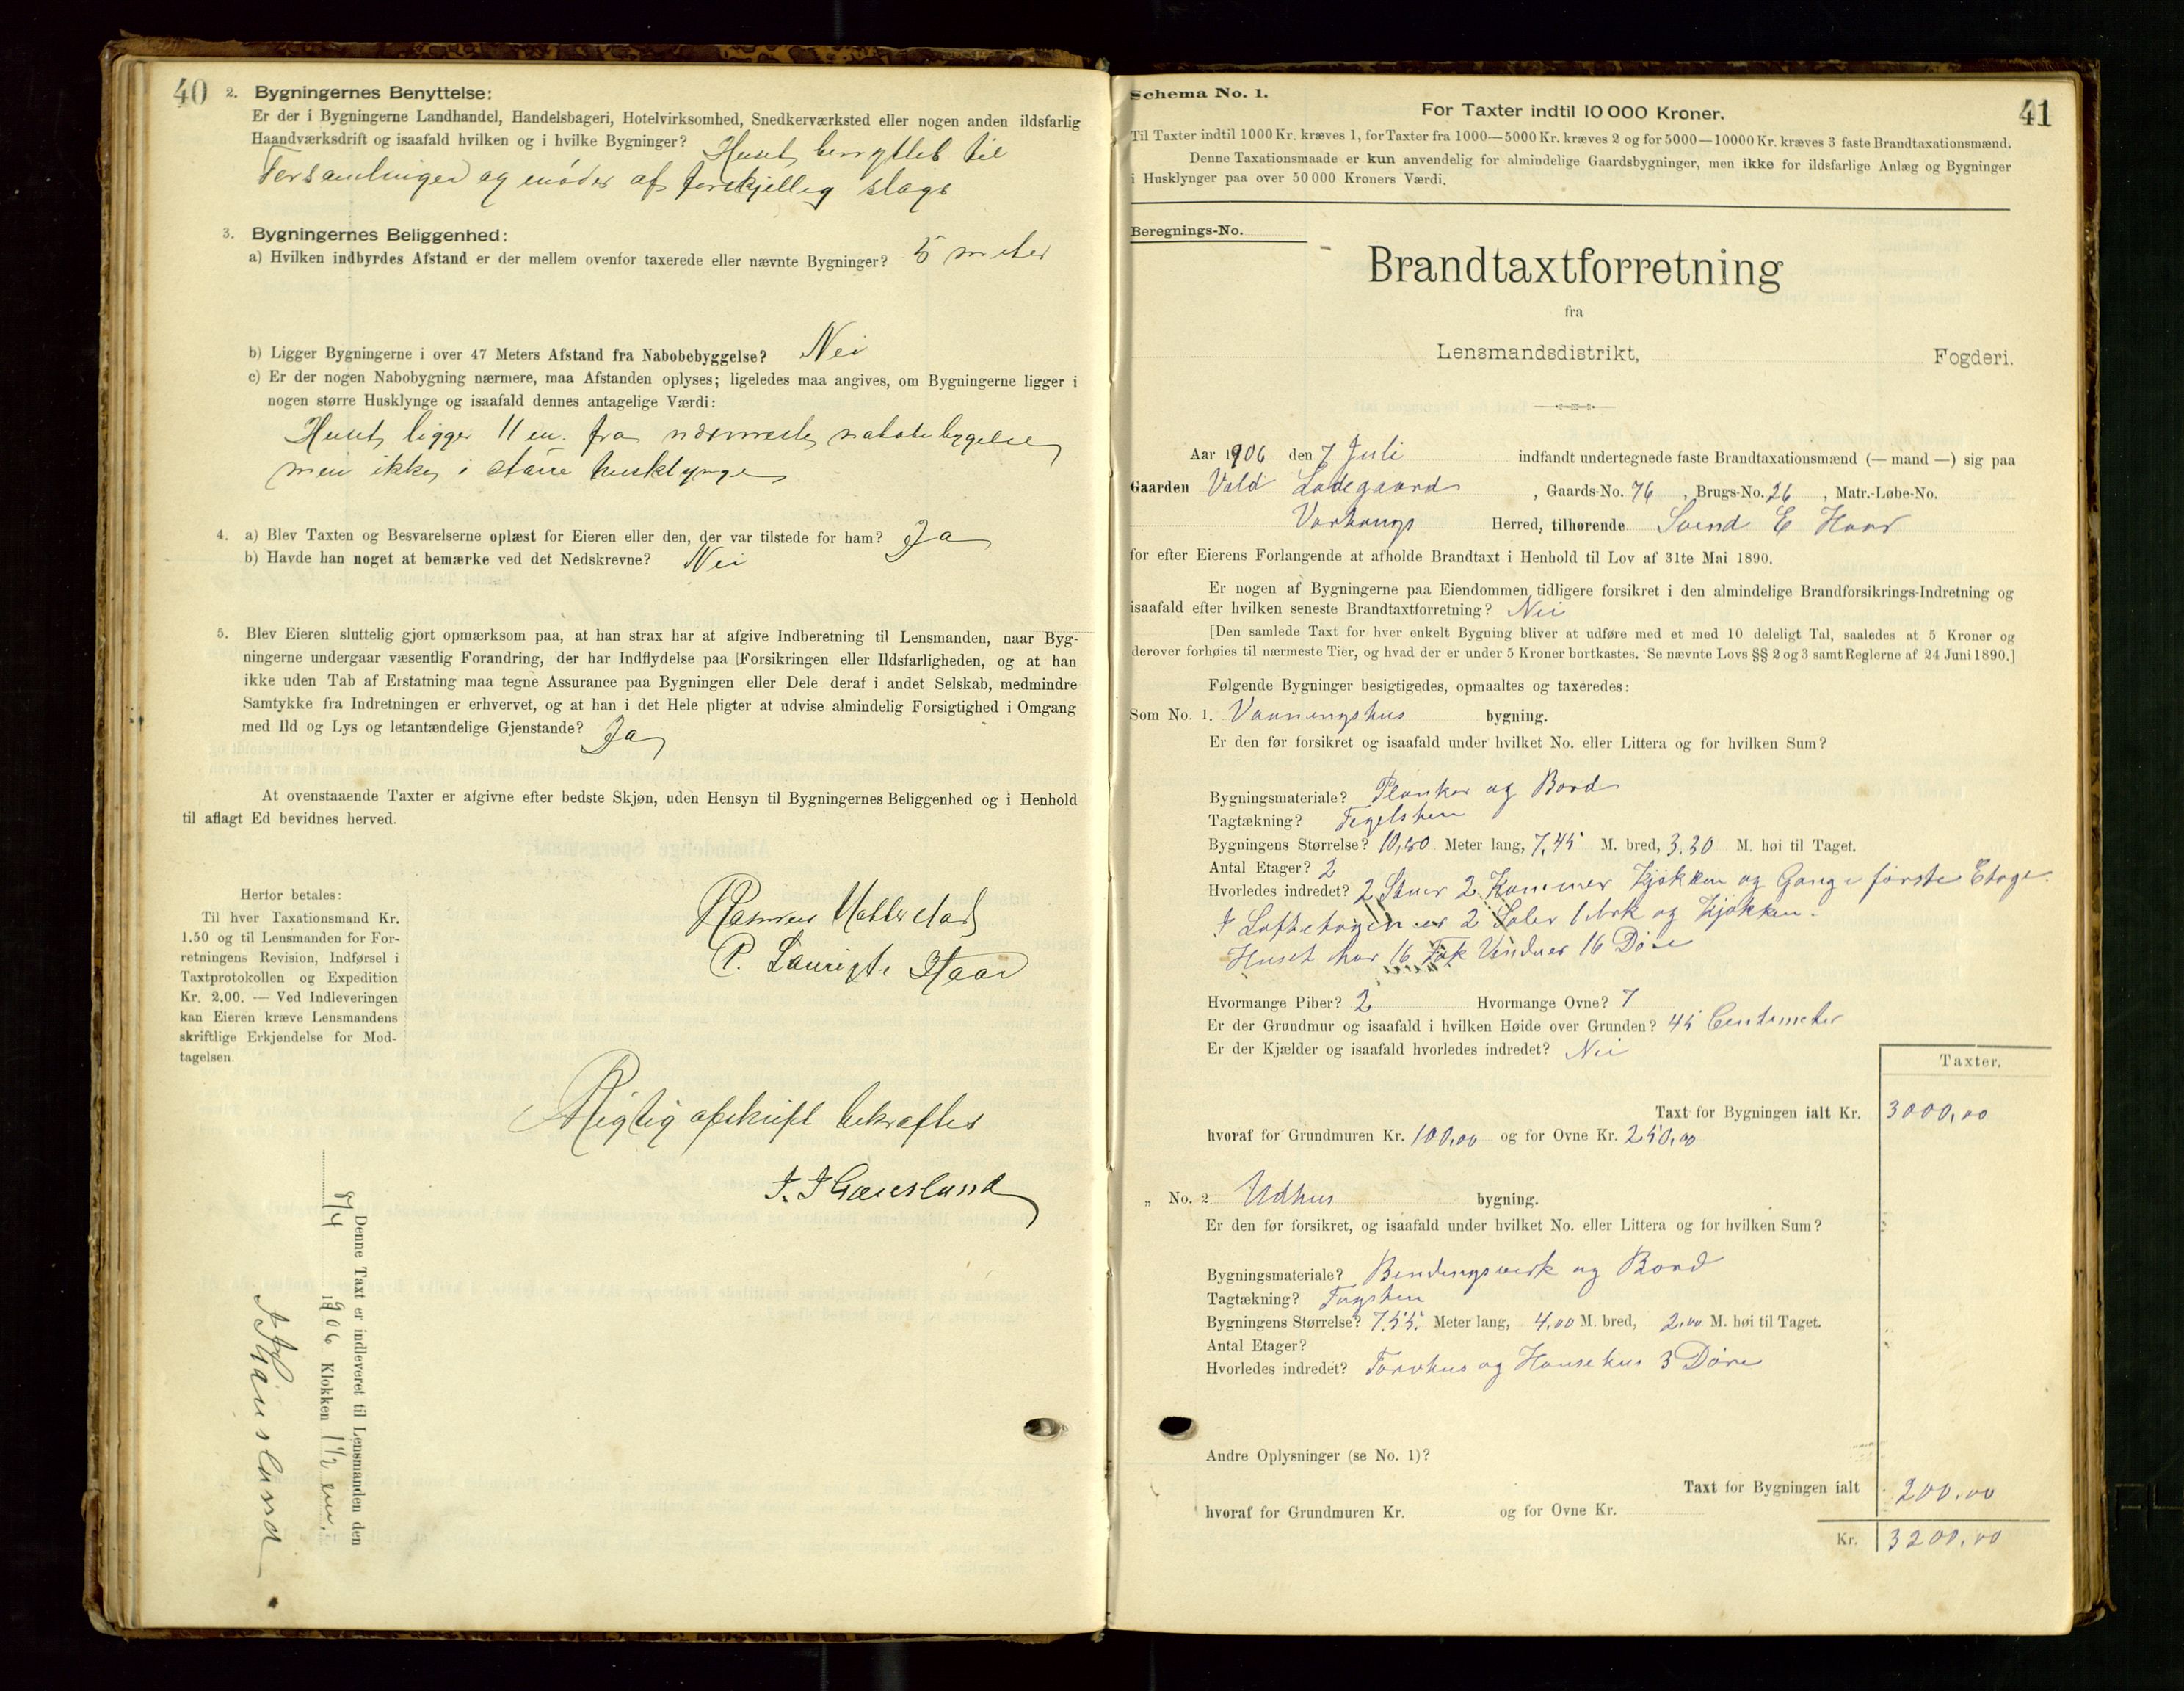 40
2. Bygningernes Benyttelse:
Er der i Bygningerne Landhandel, Handelsbageri, Hotelvirksomhed, Snedkerværksted eller nogen anden ildsfarlig
Haandværksdrift og isaafald hvilken og i hvilke Bygninger? Huset benyttet til
Forsamlinger og møder af forskjellig slags
3. Bygningernes Beliggenhed:
a) Hvilken indbyrdes Afstand er der mellem ovenfor taxerede eller nævnte Bygninger? 5 meter
b) Ligger Bygningerne i over 47 Meters Afstand fra Nabobebyggelse? Nei
c) Er der nogen Nabobygning nærmere, maa Afstanden oplyses; ligeledes maa angives, om Bygningerne ligger i
nogen større Husklynge og isaafald dennes antagelige Værdi:
Huset ligger 11 m. fra nærmeste nabobebygelse
men ikke i større husklynge
4. a) Blev Taxten og Besvarelserne oplæst for Eieren eller den, der var tilstede for ham? Ja
b) Havde han noget at bemærke ved det Nedskrevne? Nei
5. Blev Eieren sluttelig gjort opmærksom paa, at han strax har at afgive Indberetning til Lensmanden, naar Byg-
ningerne undergaar væsentlig Forandring, der har Indflydelse paa Forsikringen eller Ildsfarligheden, og at han
ikke uden Tab af Erstatning maa tegne Assurance paa Bygningen eller Dele deraf i andet Selskab, medmindre
Samtykke fra Indretningen er erhvervet, og at han i det Hele pligter at udvise almindelig Forsigtighed i Omgang
med Ild og Lys og letantændelige Gjenstande? Ja
At ovenstaaende Taxter er afgivne efter bedste Skjøn, uden Hensyn til Bygningernes Beliggenhed og i Henhold
til aflagt Ed bevidnes herved.
Herfor betales:
Til hver Taxationsmand Kr.
1.50 og til Lensmanden for For-
retningens Revision, Indførsel i
Taxtprotokollen og Expedition
Kr. 2.00. — Ved Indleveringen
kan Eieren kræve Lensmandens
skriftlige Erkjendelse for Mod-
tagelsen.
Rasmus
P. Lauritz Haar
Rigtig afskrift bekræftes
Denne Taxt er indleveret til Lensmanden den
9/4 1906 Klokken 1½ em.
41
Schema No. 1.
For Taxter indtil 10 000 Kroner.
Til Taxter indtil 1000 Kr. kræves 1, for Taxter fra 1000—5000 Kr. kræves 2 og for 5000—10000 Kr. kræves 3 faste Brandtaxationsmænd.
Denne Taxationsmaade er kun anvendelig for almindelige Gaardsbygninger, men ikke for ildsfarlige Anlæg og Bygninger
i Husklynger paa over 50 000 Kroners Værdi.
Beregnings-No.
Brandtaxtforretning
fra
Lensmandsdistrikt, Fogderi.
Aar 1906 den 7 Juli indfandt undertegnede faste Brandtaxationsmænd (— mand —) sig paa
Gaarden Vald Ladegaard, Gaards-No. 76, Brugs-No. 26, Matr.-Løbe-No.
Varhaugs Herred, tilhørende Svend E Haar
for efter Eierens Forlangende at afholde Brandtaxt i Henhold til Lov af 31te Mai 1890.
Er nogen af Bygningerne paa Eiendommen tidligere forsikret i den almindelige Brandforsikrings-Indretning og
isaafald efter hvilken seneste Brandtaxtforretning? Nei
[Den samlede Taxt for hver enkelt Bygning bliver at udføre med et med 10 deleligt Tal, saaledes at 5 Kroner og
derover forhøies til nærmeste Tier, og hvad der er under 5 Kroner bortkastes. Se nævnte Lovs §§ 2 og 3 samt Reglerne af 24 Juni 1890.]
Følgende Bygninger besigtigedes, opmaaltes og taxeredes:
Som No. 1. Vaaningshus bygning.
Er den før forsikret og isaafald under hvilket No. eller Littera og for hvilken Sum?
Bygningsmateriale? Planker og Bord
Tagtækning? Tegelsten
Bygningens Størrelse? 10,80 Meter lang, 7.45 M. bred, 3.30 M. høi til Taget.
Antal Etager? 2
Hvorledes indredet? 2 Stuer 2 Kammer Kjøkken og Gang i første Etage.
I Loftetagen er 2 Saler 1 Ark og Kjøkken.
Huset har 16 Fak Vinduer 16 Døre
Hvormange Piber? 2 Hvormange Ovne? 7
Er der Grundmur og isaafald i hvilken Høide over Grunden? 45 Centimeter
Er der Kjælder og isaafald hvorledes indredet? Nei
Taxter.
Taxt for Bygningen ialt Kr. 3000,00
hvoraf for Grundmuren Kr. 100,00 og for Ovne Kr. 250,00
„ No. 2 Udhus bygning.
Er den før forsikret, og isaafald under hvilket No. eller Littera og for hvilken Sum?
Bygningsmateriale? Bindingsverk og Bord
Tagtækning? Tagsten
Bygningens Størrelse? 7.55. Meter lang, 4.00 M. bred, 2.00 M. høi til Taget.
Antal Etager?
Hvorledes indredet? Torvhus og Hønsehus 3 Døre
Andre Oplysninger (se No. 1)?
Taxt for Bygningen ialt 200,00
hvoraf for Grundmuren Kr. og for Ovne Kr.
Kr. 3200,00